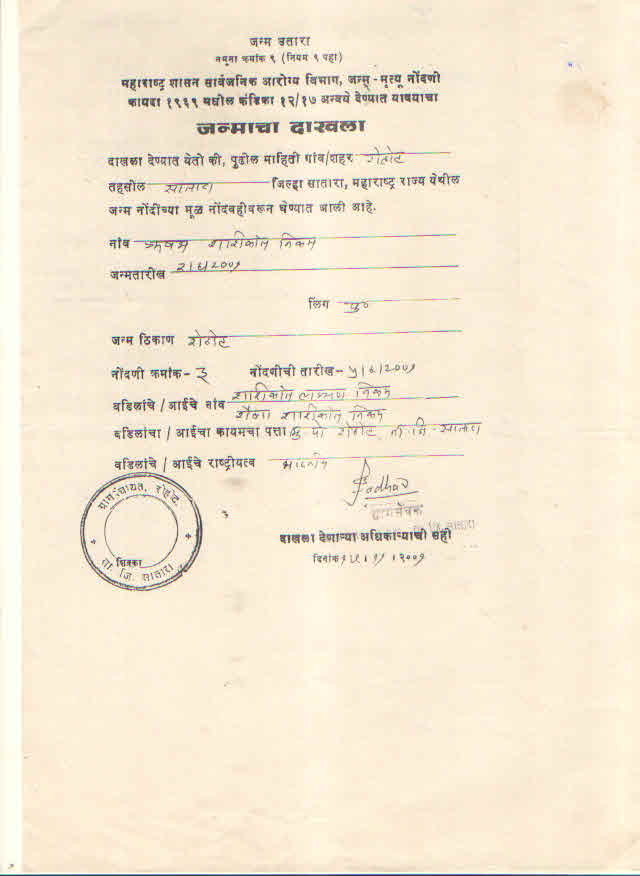 जन्म उतारा
नमूना क्रमांक ९ (नियम ९ पहा)
महाराष्ट्र शासन सार्वजनिक आरोग्य विभाग, जन्म - मृत्यू नोंदणी
कायदा १९६९ मधील कंडिका १२/१७ अन्वये देण्यात यावयाचा
जन्माचा दाखला
दाखला देण्यात येतो की, पुढील माहिती गांव/शहर
तहसील सातारा जिल्हा सातारा, महाराष्ट्र राज्य येथील
जन्म नोंदींच्या मूळ नोंदवहीवरून घेण्यात आली आहे.
नांव शशिकांत निकम
जन्मतारीख
लिंग पु०
जन्म ठिकाण
नोंदणी क्रमांक- ३ नोंदणीची तारीख-
वडिलांचे / आईचे नांव शशिकांत लक्ष्मण निकम
शशिकांत निकम
वडिलांचा / आईचा कायमचा पत्ता मु पो ता. जि - सातारा
वडिलांचे / आईचे राष्ट्रीयत्व भारतीय
ग्रामपंचायत,
शिक्का
ता. जि. सातारा
ग्रामसेवक
दाखला देणाऱ्या अधिकाऱ्याची सही
दिनांक